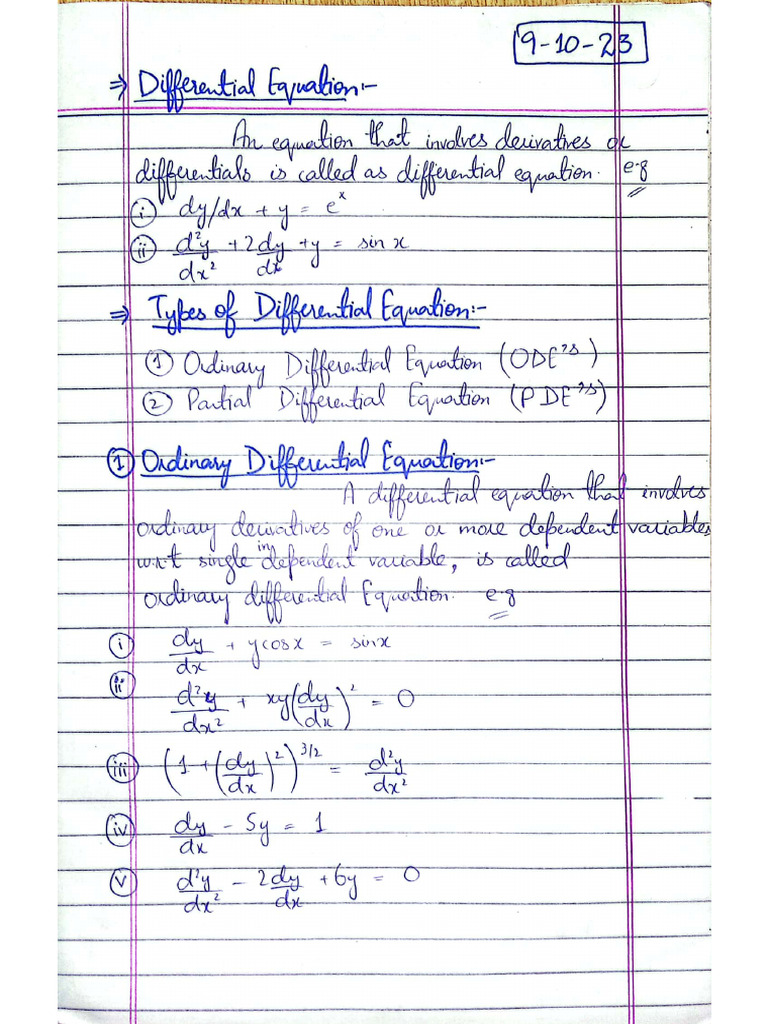 9-10-23
⇒ Differential Equation:-
An equation that involves derivatives or
differentials is called as differential equation. e.g
(i) dy/dx + y = e^x
(ii) d²y/dx² + 2dy/dx + y = sin x
⇒ Types of Differential Equation:-
(1) Ordinary Differential Equation (ODE's)
(2) Partial Differential Equation (PDE's)
(1) Ordinary Differential Equation:-
A differential equation that involves
ordinary derivatives of one or more dependent variables
w.r.t single independent variable, is called
ordinary differential Equation. e.g
(i) dy/dx + ycosx = sinx
(ii) d²y/dx² + xy(dy/dx)² = 0
(iii) (1 + (dy/dx)²)^3/2 = d²y/dx²
(iv) dy/dx - 5y = 1
(v) d²y/dx² - 2dy/dx + 6y = 0